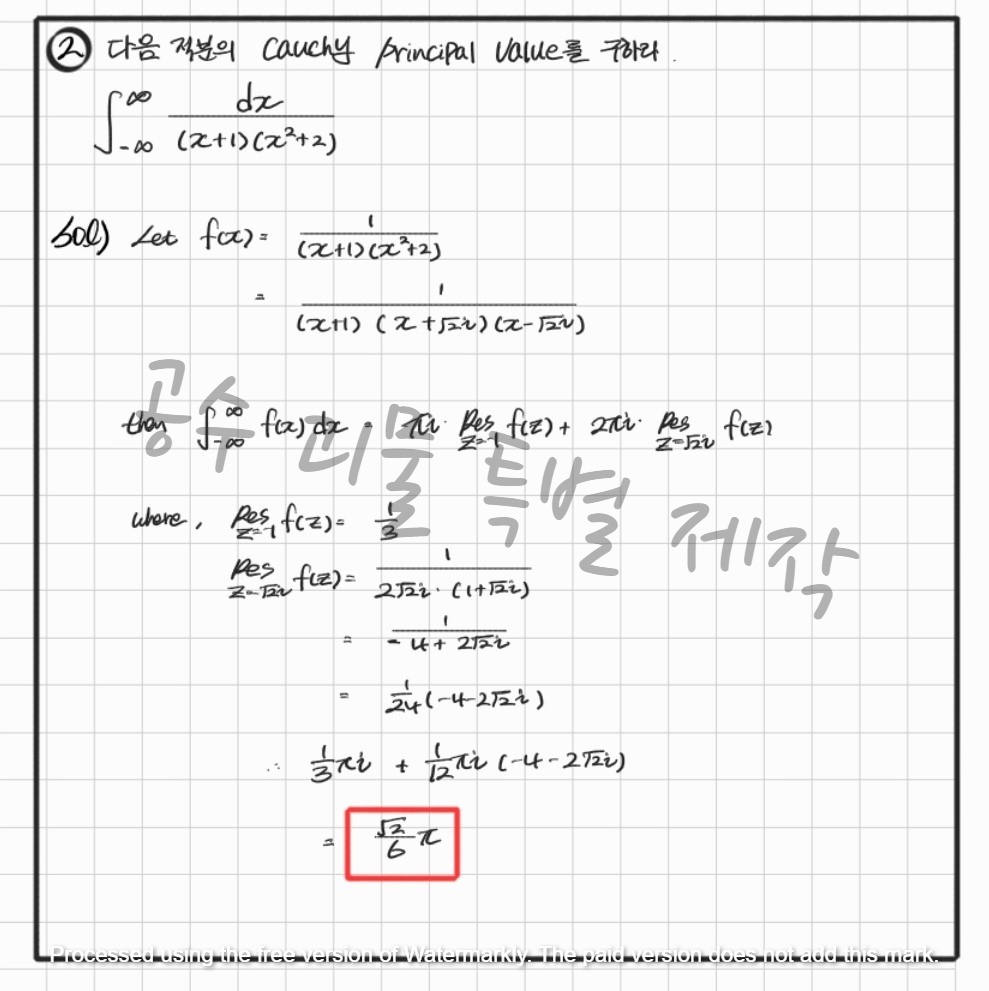 ② 다음 적분의 Cauchy principal value를 구하라.
∫_{-∞}^{∞} dx / (x+1)(x²+2)
sol) Let f(x) = 1 / (x+1)(x²+2)
= 1 / (x+1)(x+√2i)(x-√2i)
then ∫_{-∞}^{∞} f(x)dx = πi · Res_{z=-1} f(z) + 2πi · Res_{z=√2i} f(z)
where, Res_{z=-1} f(z) = 1/3
Res_{z=√2i} f(z) = 1 / 2√2i · (1+√2i)
= 1 / -4+2√2i
= 1/24 (-4-2√2i)
∴ 1/3 πi + 1/12 πi (-4-2√2i)
= √2/6 π
공수 괴물 특별 제작
Processed using the free version of Watermarkly. The paid version does not add this mark.